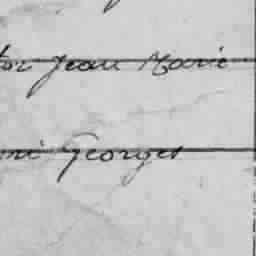 tor Jean Marie
mi Georges